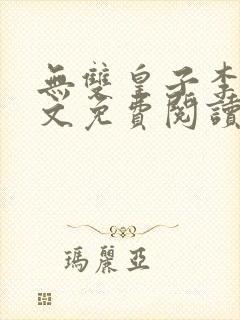 無雙皇子李
文免費閱讀
瑪麗亞